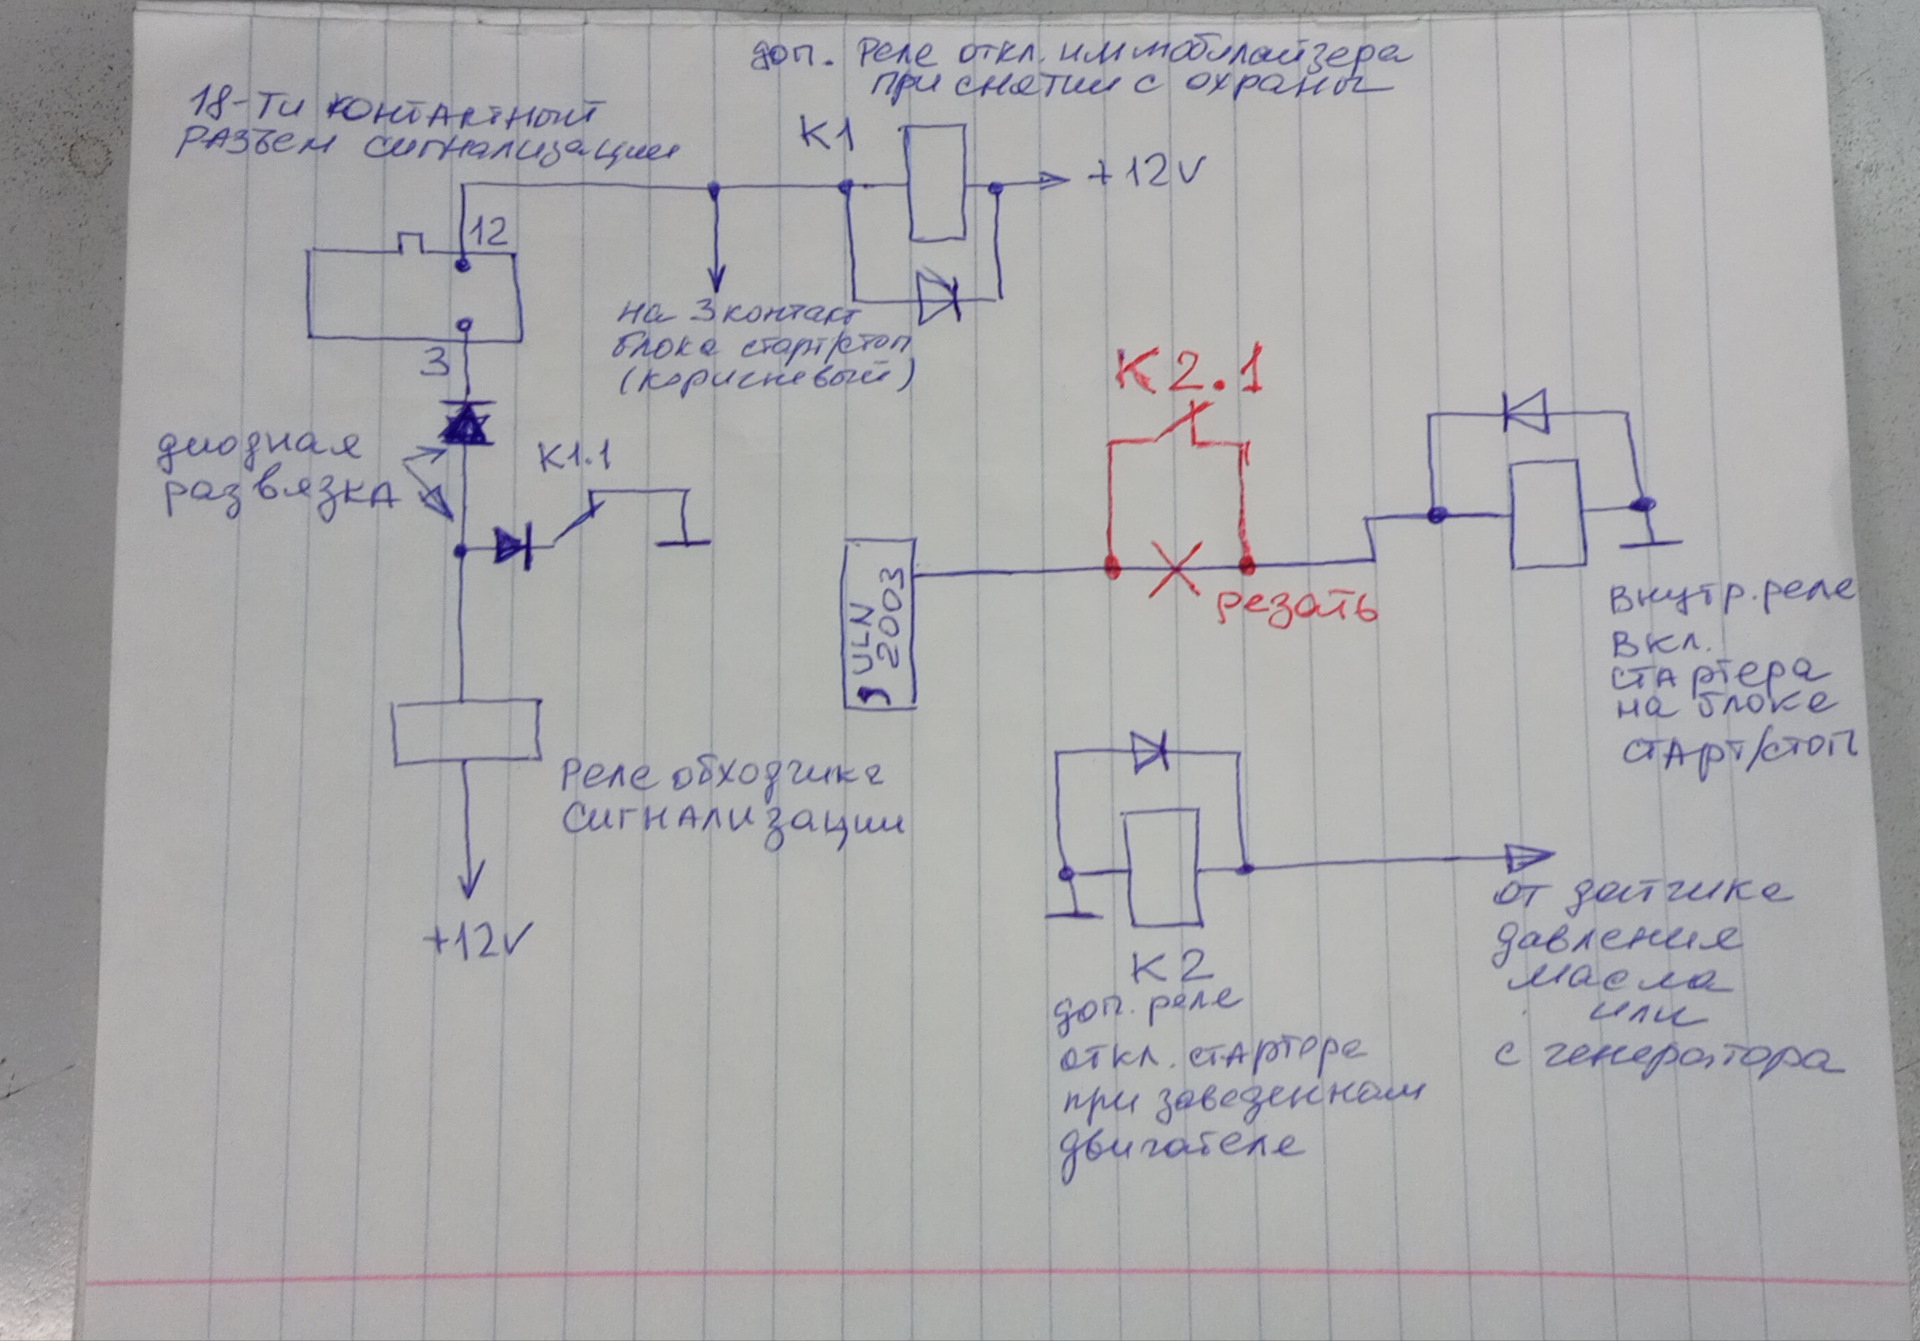 доп. Реле откл. иммобилайзера
при снятии с охраны
18-ти контактный
разъем сигнализации
К1
+12V
12
на 3 контакт
блока старт/стоп
(коричневый)
3
К2.1
диодная
развязка
К1.1
резать
ULN
2003
внутр. реле
вкл.
стартера
на блоке
старт/стоп
Реле обходчика
сигнализации
+12V
К2
доп. реле
откл. стартера
при заведенном
двигателе
от датчика
давления
масла
или
с генератора